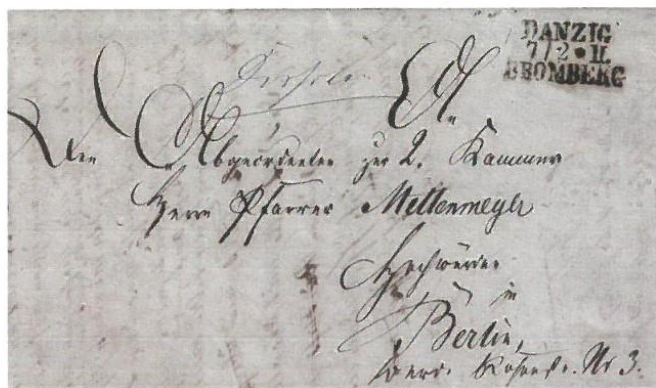 DANZIG
7/2 * II.
BROMBERG
Den Abgeordneten zur 2. Kammer
Herrn Pfarrer Mettenmeyer
Hochwürden
in
Berlin,
Nr 3.